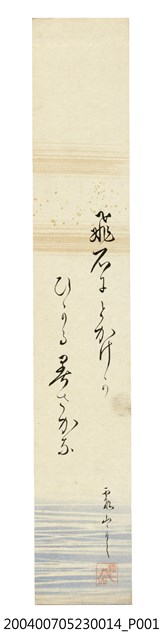 飛石にとかけの
ひかる暑さかな
200400705230014_P001